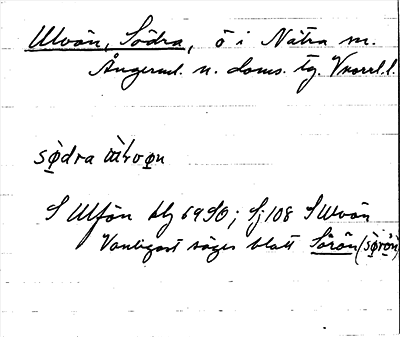 Ulvön, Södra, ö i Nätra sn.
Ångerml. n. doms. tg. Vnorrl. l.
sø̀dra
S Ulfön Hg 69 SO; Sj 108 S Ulvön
Vanligast säges blott Sörön (sø̀rø̀n)